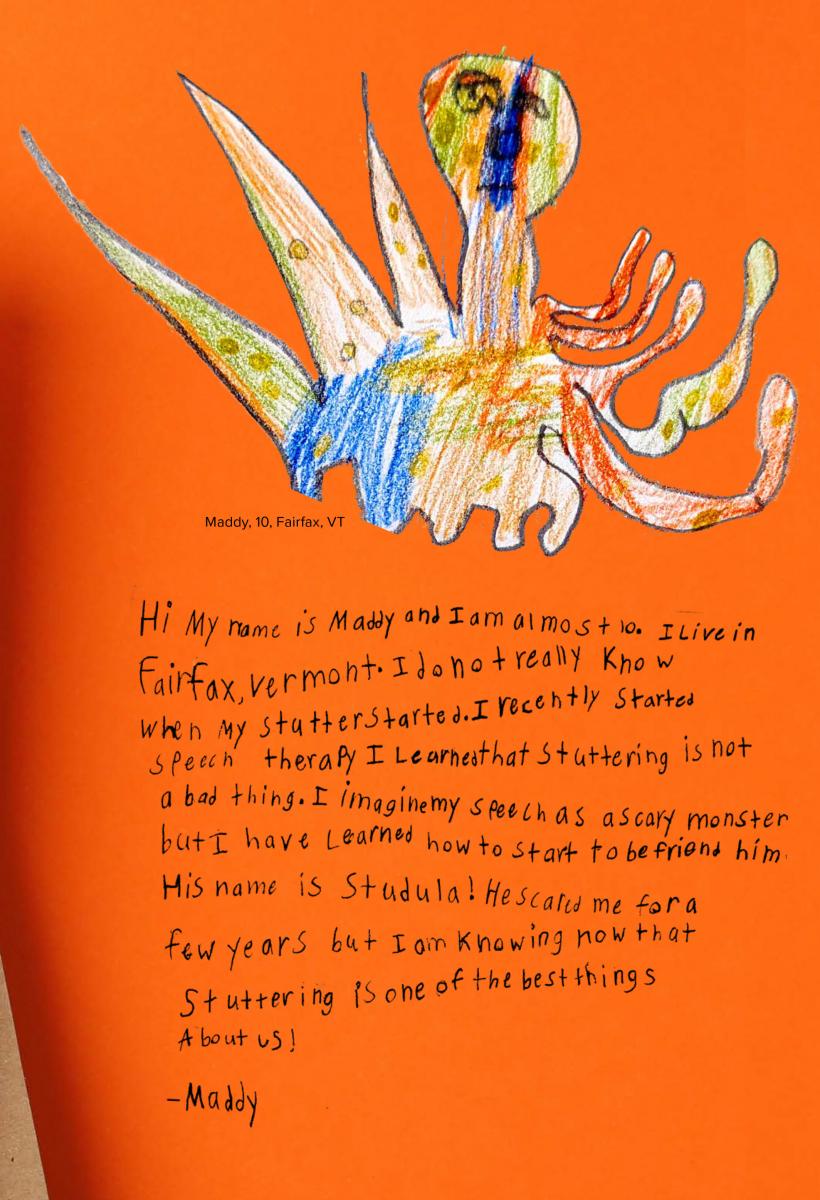 Maddy, 10, Fairfax, VT
Hi My name is Maddy and I am almost 10. I Live in
Fairfax, Vermont. I do not really Know
when My stutter started. I recently Started
speech therapy I Learned that Stuttering is not
a bad thing. I imagine my speech as a scary monster
but I have Learned how to start to befriend him.
His name is Studula! He scared me for a
few years but I am Knowing now that
Stuttering is one of the best things
About us!
-Maddy